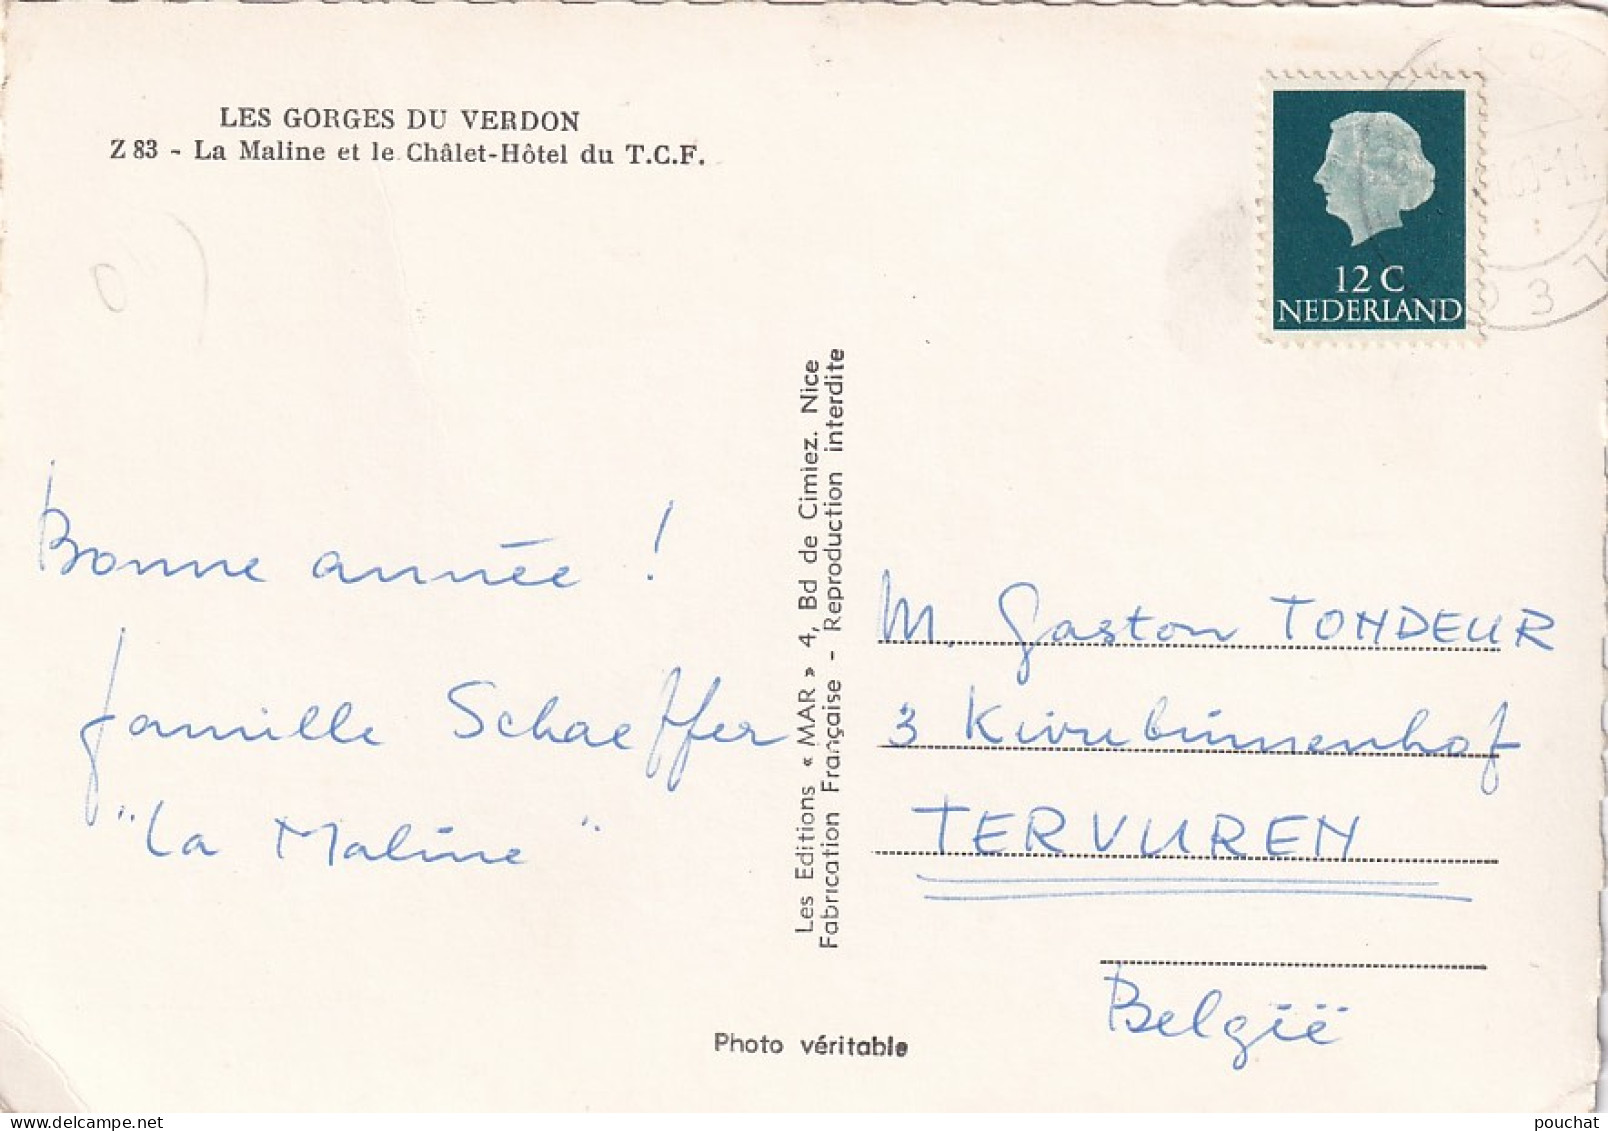 LES GORGES DU VERDON
Z 83 - La Maline et le Châlet-Hôtel du T.C.F.
12 C
NEDERLAND
Bonne année !
famille Schaeffer
"La Maline"
Les Editions « MAR » 4, Bd de Cimiez. Nice
Fabrication Française - Reproduction interdite
M. Gaston TONDEUR
3
TERVUREN
België
Photo véritable
pouchat